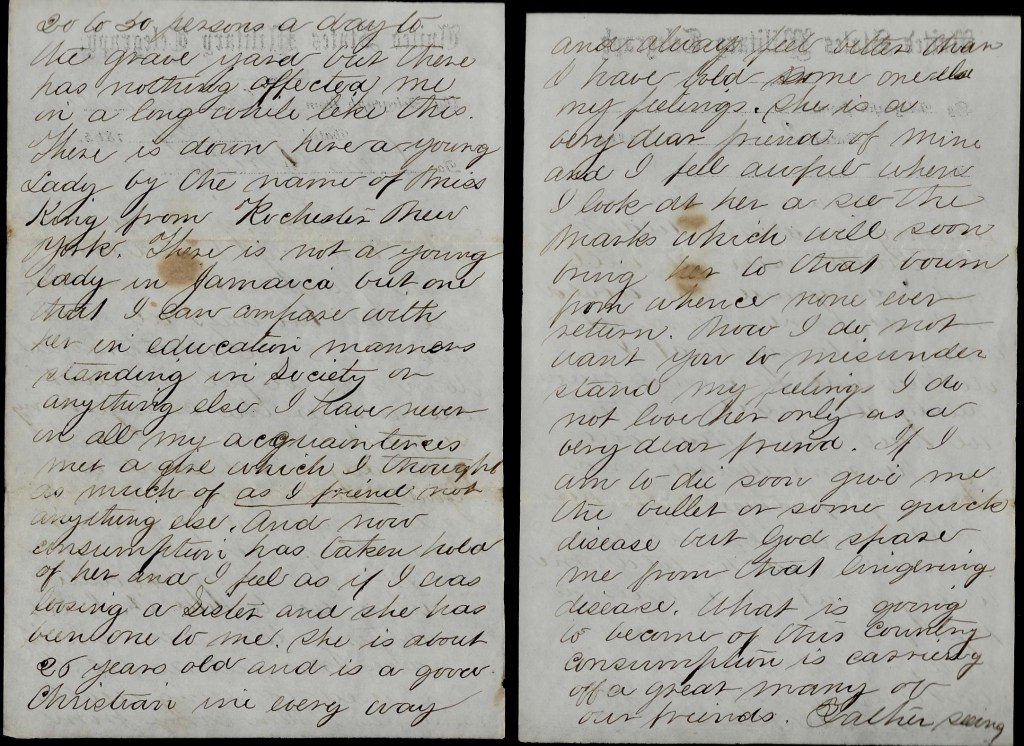 20 to 50 persons a day to
the grave yard but there
has nothing affected me
in a long while like this.
There is down here a young
Lady by the name of Miss
King from Rochester New
York. There is not a young
lady in Jamaica but one
that I can compare with
her in education manners
standing in Society or
anything else. I have never
in all my acquaintences
met a girl which I thought
as much of as I friend not
anything else. And now
consumption has taken hold
of her and I feel as if I was
loosing a Sister and she has
been one to me. She is about
26 years old and is a good
Christian in every way
and always feel better than
I have told some one else
my feelings. She is a
very dear friend of mine
and I fell awful when
I look at her a see the
marks which will soon
bring her to that bourn
from whence none ever
return. Now I do not
want you to misunder
stand my feelings I do
not love her only as a
very dear friend. If I
am to die soon give me
the bullet or some quick
disease but God spare
me from that lingering
disease. What is going
to become of this Country
consumption is carrieng
off a great many of
our friends. Father seeing